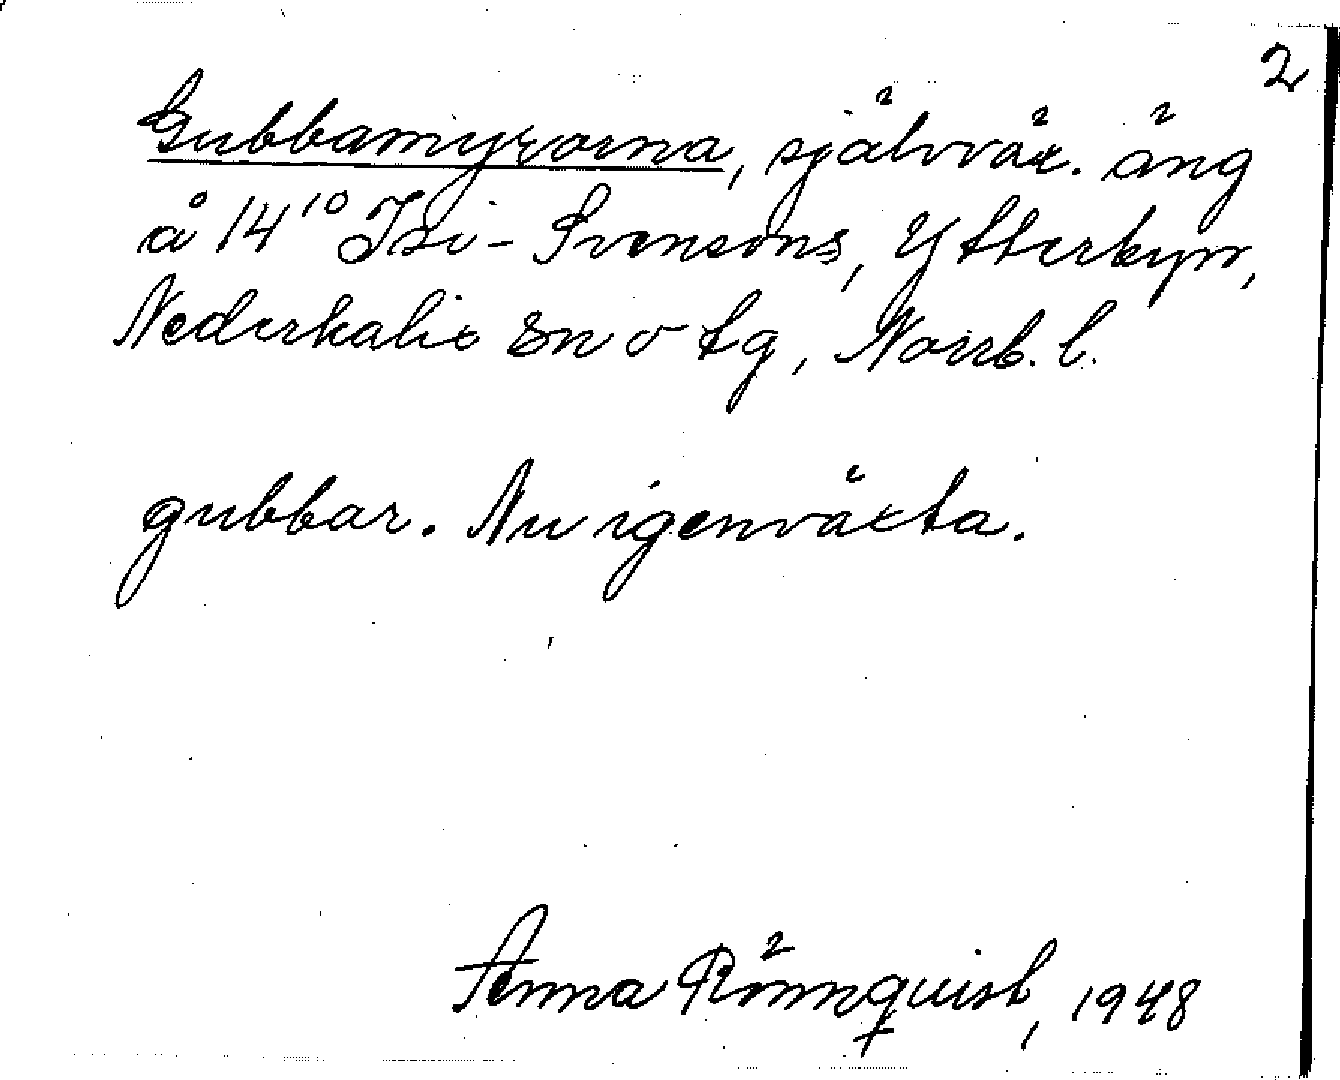 2
Gubbamyrorna, självväx. äng
å 14¹⁰ Isi-Svensons, Ytterbyn,
Nederkalix sn o tg, Norrb. l.
gubbar. Nu igenväxta.
Anna Rönnquist, 1948